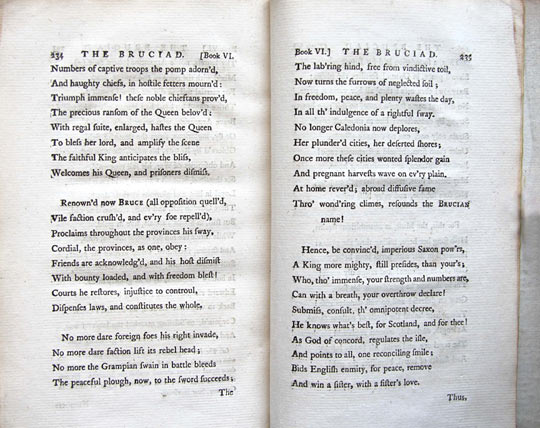 234 THE BRUCIAD. [Book VI.
Numbers of captive troops the pomp adorn'd,
And haughty chiefs, in hoſtile fetters mourn'd:
Triumph immenſe! theſe noble chieftans prov'd,
The precious ranſom of the Queen belov'd:
With regal ſuite, enlarged, haſtes the Queen
To bleſs her lord, and amplify the ſcene
The faithful King anticipates the bliſs,
Welcomes his Queen, and priſoners diſmiſs.
Renown'd now BRUCE (all oppoſition quell'd,
Vile faction cruſh'd, and ev'ry foe repell'd),
Proclaims throughout the provinces his ſway.
Cordial, the provinces, as one, obey:
Friends are acknowledg'd, and his hoſt diſmiſt
With bounty loaded, and with freedom bleſt!
Courts he reſtores, injuſtice to controul,
Diſpenſes laws, and conſtitutes the whole,
No more dare foreign foes his right invade,
No more dare faction lift its rebel head;
No more the Grampian ſwain in battle bleeds
The peaceful plough, now, to the ſword ſucceeds;
The
Book VI.] THE BRUCIAD. 235
The lab'ring hind, free from vindictive toil,
Now turns the furrows of neglected ſoil;
In freedom, peace, and plenty waſtes the day,
In all th' indulgence of a rightful ſway.
No longer Caledonia now deplores,
Her plunder'd cities, her deſerted ſhores;
Once more theſe cities wonted ſplendor gain
And pregnant harveſts wave on ev'ry plain.
At home rever'd; abroad diffuſive fame
Thro' wond'ring climes, reſounds the BRUCIAN
name!
Hence, be convinc'd, imperious Saxon pow'rs,
A King more mighty, ſtill preſides, than your's;
Who, tho' immenſe, your ſtrength and numbers are,
Can with a breath, your overthrow declare!
Submiſs, conſult, th' omnipotent decree,
He knows what's beſt, for Scotland, and for thee!
As God of concord, regulates the iſle,
And points to all, one reconciling ſmile;
Bids Engliſh enmity, for peace, remove
And win a ſiſter, with a ſiſter's love.
Thus,